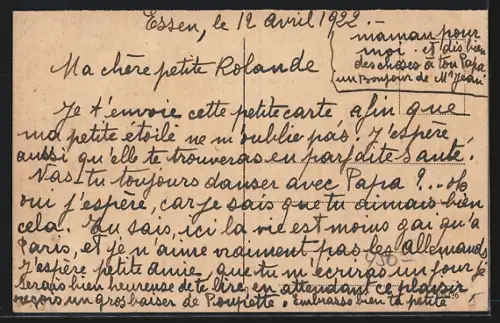 Essen, le 12 Avril 1922.-
Ma chère petite Rolande
Je t'envoie cette petite carte afin que
ma petite étoile ne m'oublie pas. J'espère
aussi qu'elle te trouveras en parfaite santé.
Vas-tu toujours danser avec Papa?..oh
oui j'espère, car je sais que tu aimais bien
cela. Tu sais, ici la vie est moins gai qu'à
Paris, et je n'aime vraiment pas les allemands
J'espère petite amie, que tu m'écriras un jour, je
serais bien heureuse de te lire, en attendant ce plaisir
reçois un gros baiser de Poupette. embrasse bien ta petite
maman pour
moi. et dis bien
des choses à ton Papa
un Bonjour de Mr Jean